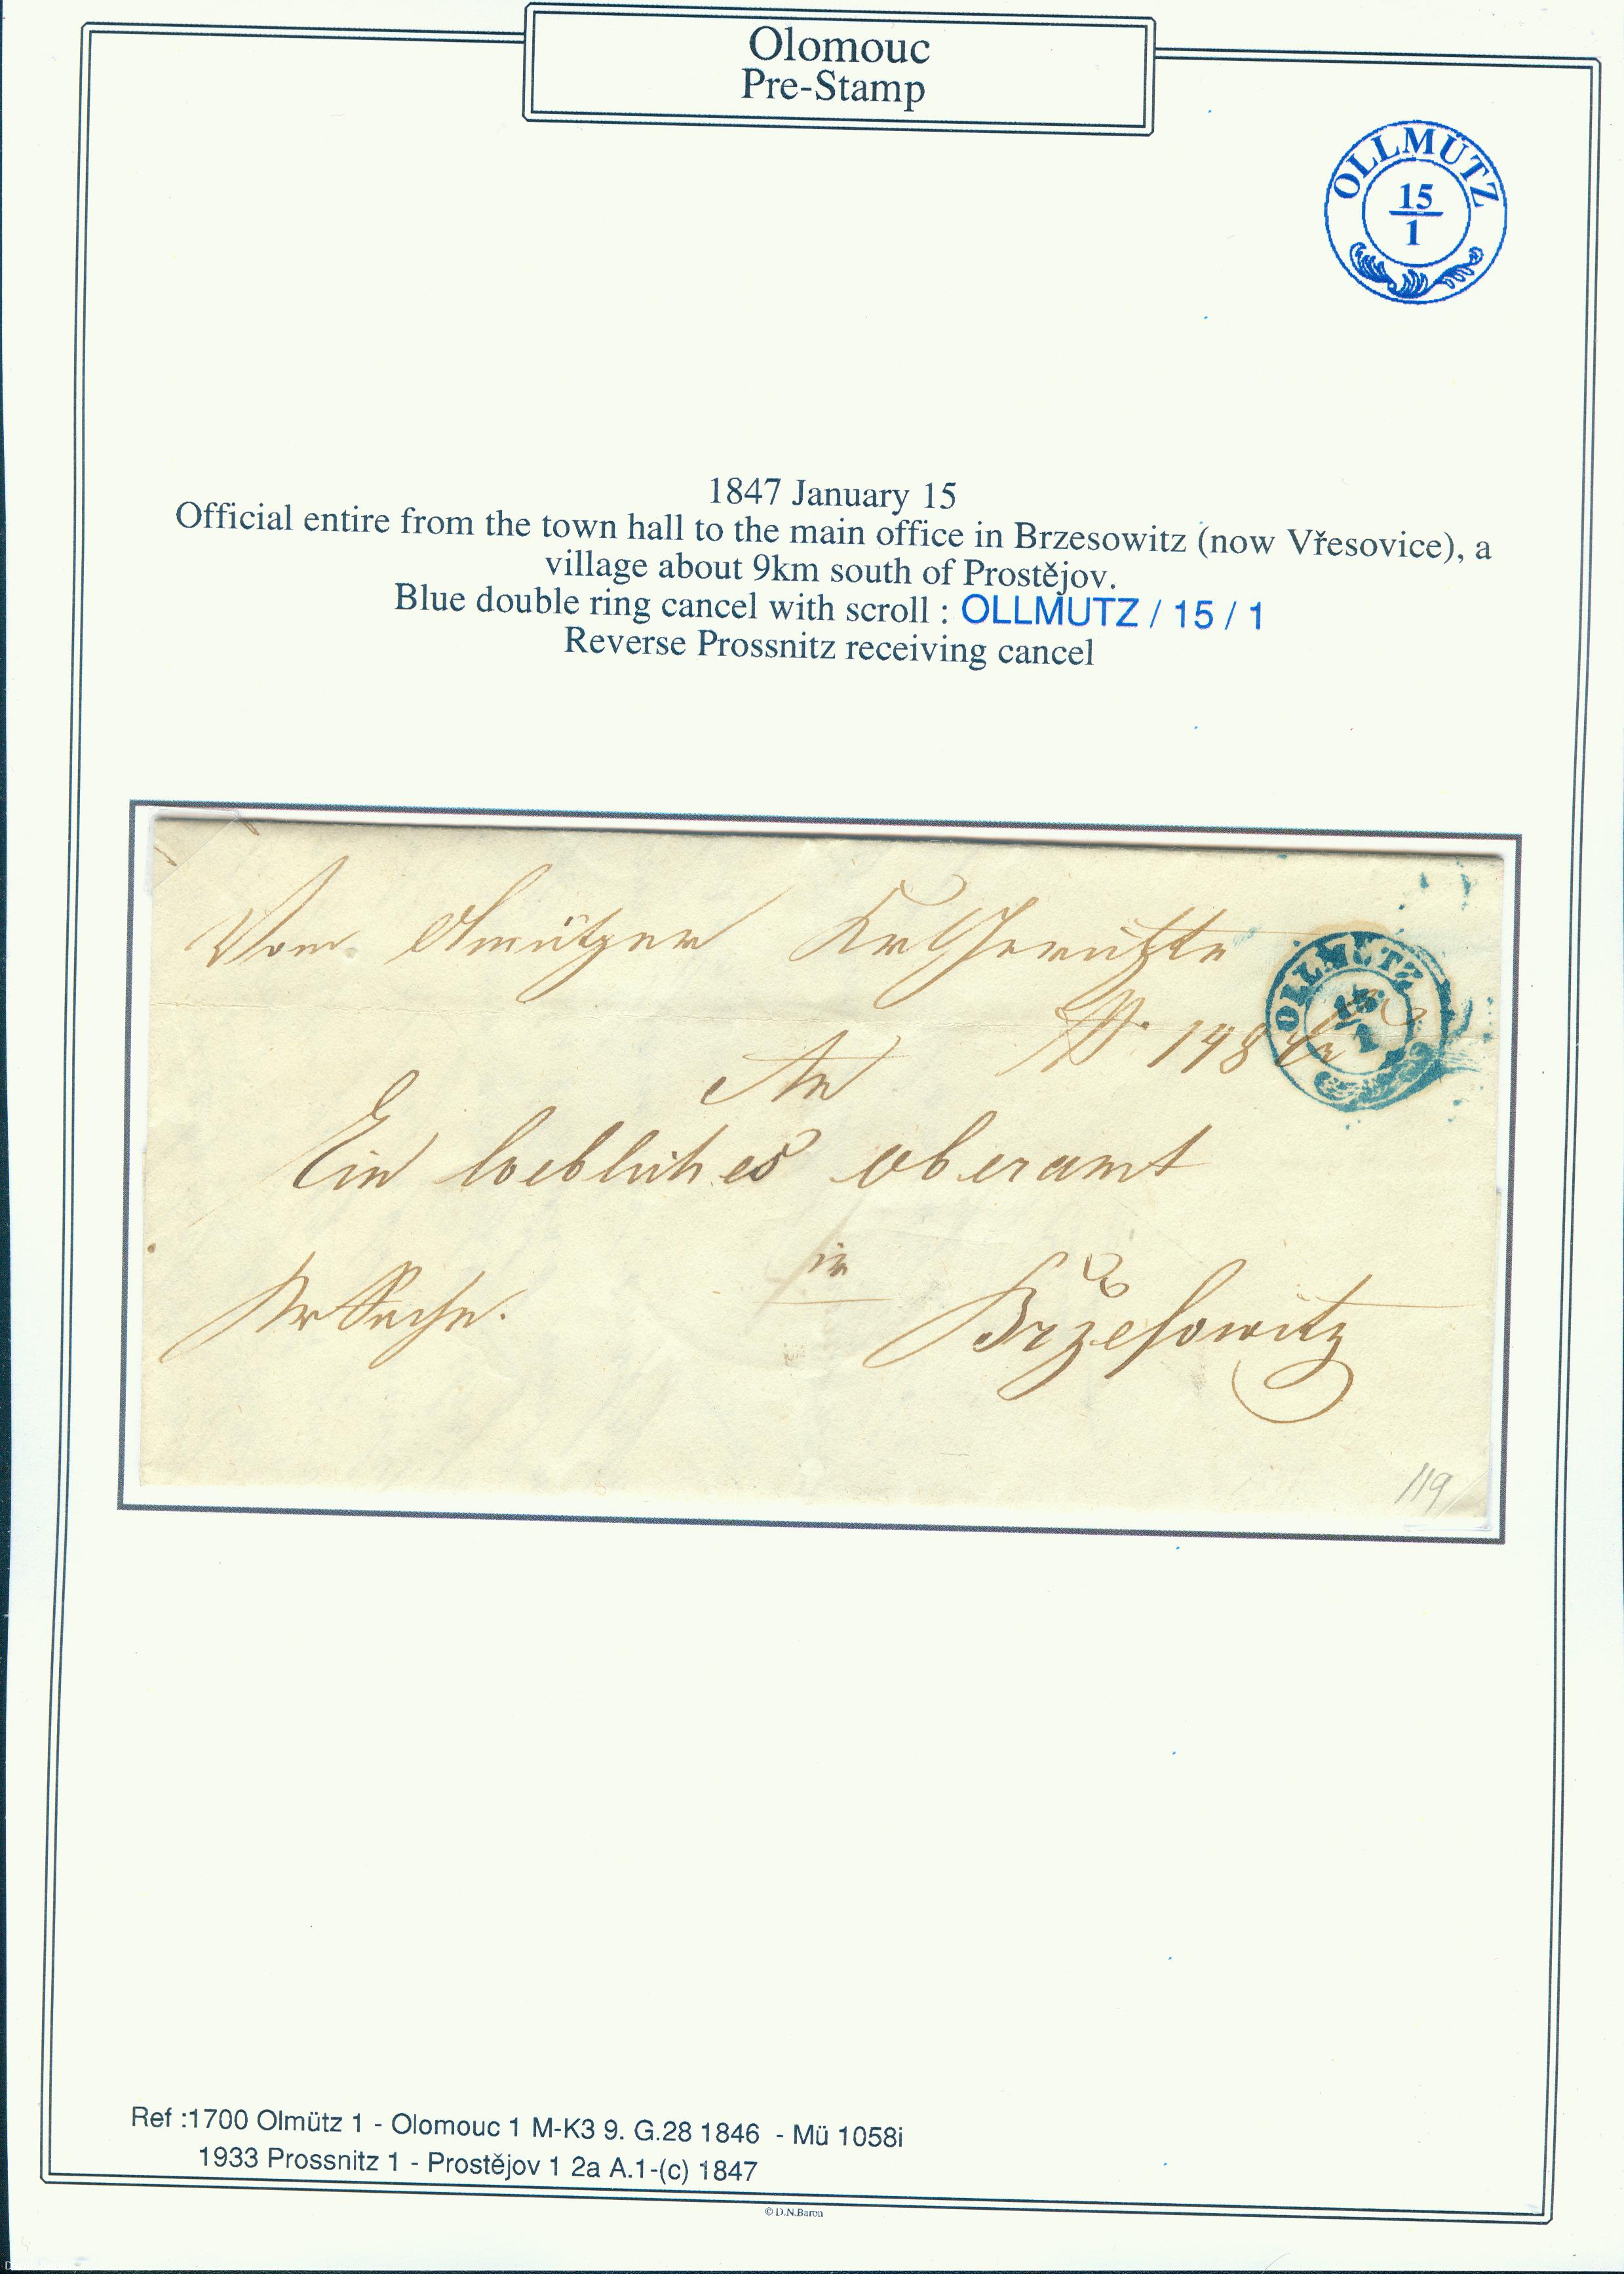 Olomouc
Pre-Stamp
OLLMÜTZ
15
1
1847 January 15
Official entire from the town hall to the main office in Brzesowitz (now Vřesovice), a
village about 9km south of Prostějov.
Blue double ring cancel with scroll : OLLMUTZ / 15 / 1
Reverse Prossnitz receiving cancel
Vom Olmützer
OLLMÜTZ
15
1
An
Ein loebliches oberamt
in
Brzesowitz
119
Ref :1700 Olmütz 1 - Olomouc 1 M-K3 9. G.28 1846 - Mü 1058i
1933 Prossnitz 1 - Prostějov 1 2a A.1-(c) 1847
© D.N.Baron